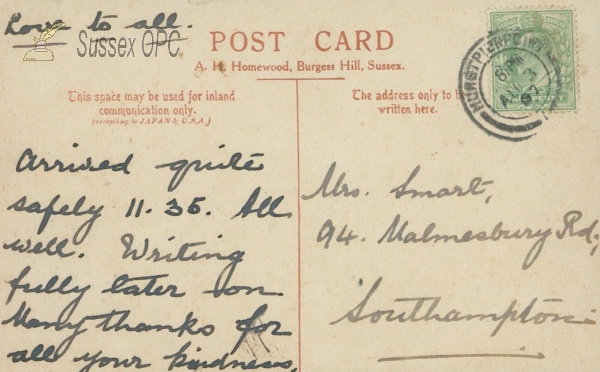 Love to all.
Sussex OPC
POST CARD
A. H. Homewood, Burgess Hill, Sussex.
This space may be used for inland
communication only.
(excepting to JAPAN & U.S.A.)
The address only to be
written here.
HURSTPIERPOINT
8 PM
AU 3
07
Arrived quite
safely 11.35. All
well. Writing
fully later on.
Many thanks for
all your kindness,
Mrs. Smart,
94. Malmesbury Rd,
Southampton.